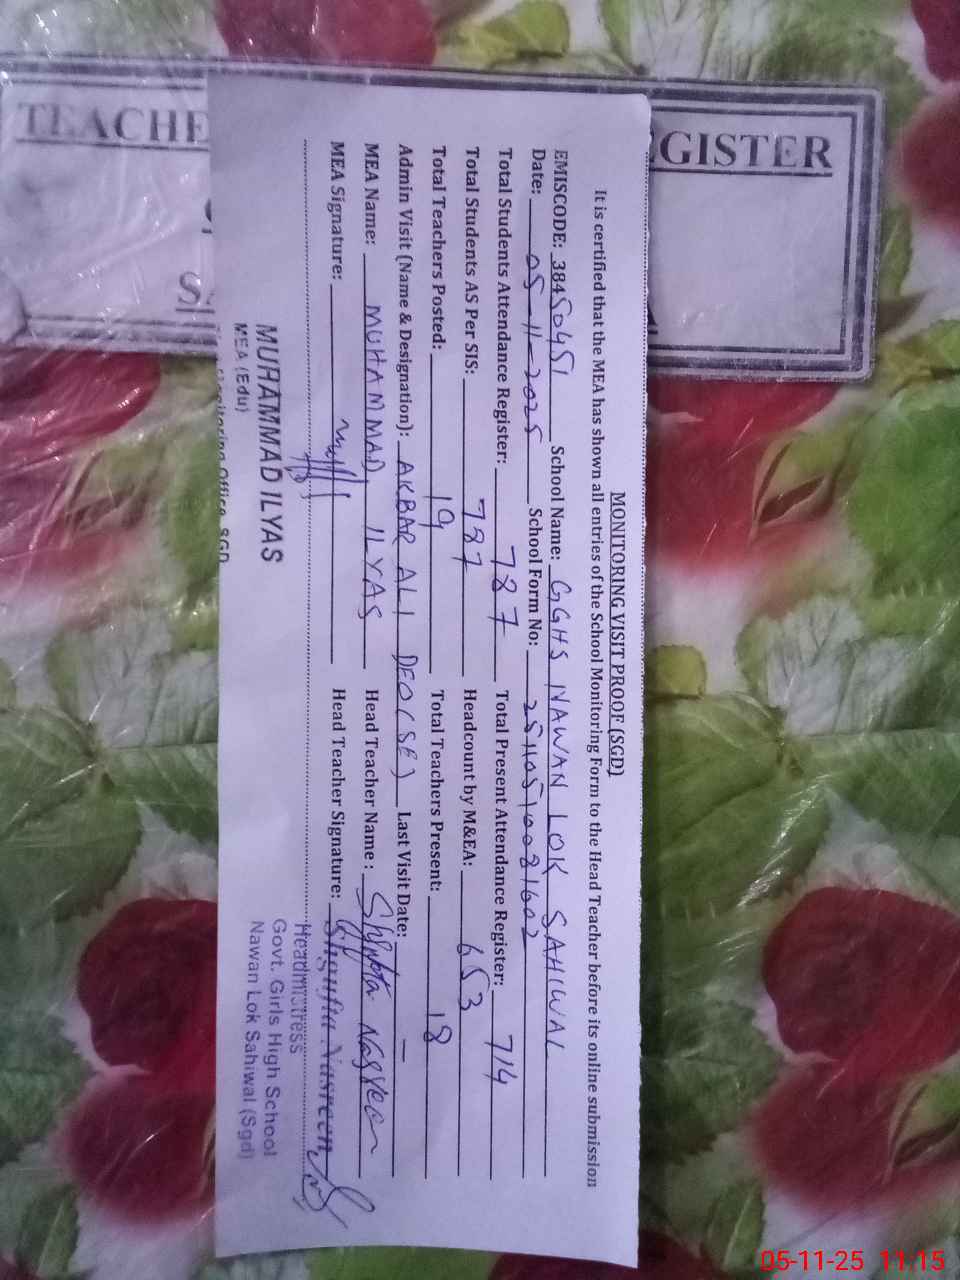 TEACHE
GISTER
MONITORING VISIT PROOF [SGD]
It is certified that the MEA has shown all entries of the School Monitoring Form to the Head Teacher before its online submission
EMISCODE: 38450451 School Name: GGHS NAWAN LOK SAHIWAL
Date: 05-11-2025 School Form No: 25110510081602
Total Students Attendance Register: 787 Total Present Attendance Register: 714
Total Students AS Per SIS: 787 Headcount by M&EA: 653
Total Teachers Posted: 19 Total Teachers Present: 18
Admin Visit (Name & Designation): AKBAR ALI DEO(SE) Last Visit Date: —
MEA Name: MUHAMMAD ILYAS Head Teacher Name: Shgufta Nasreen
MEA Signature: Head Teacher Signature:
Shgufta Nasreen
Headmistress
Govt. Girls High School
Nawan Lok Sahiwal (Sgd)
MUHAMMAD ILYAS
MEA (Edu)
Monitoring Office SGD
05-11-25 11:15